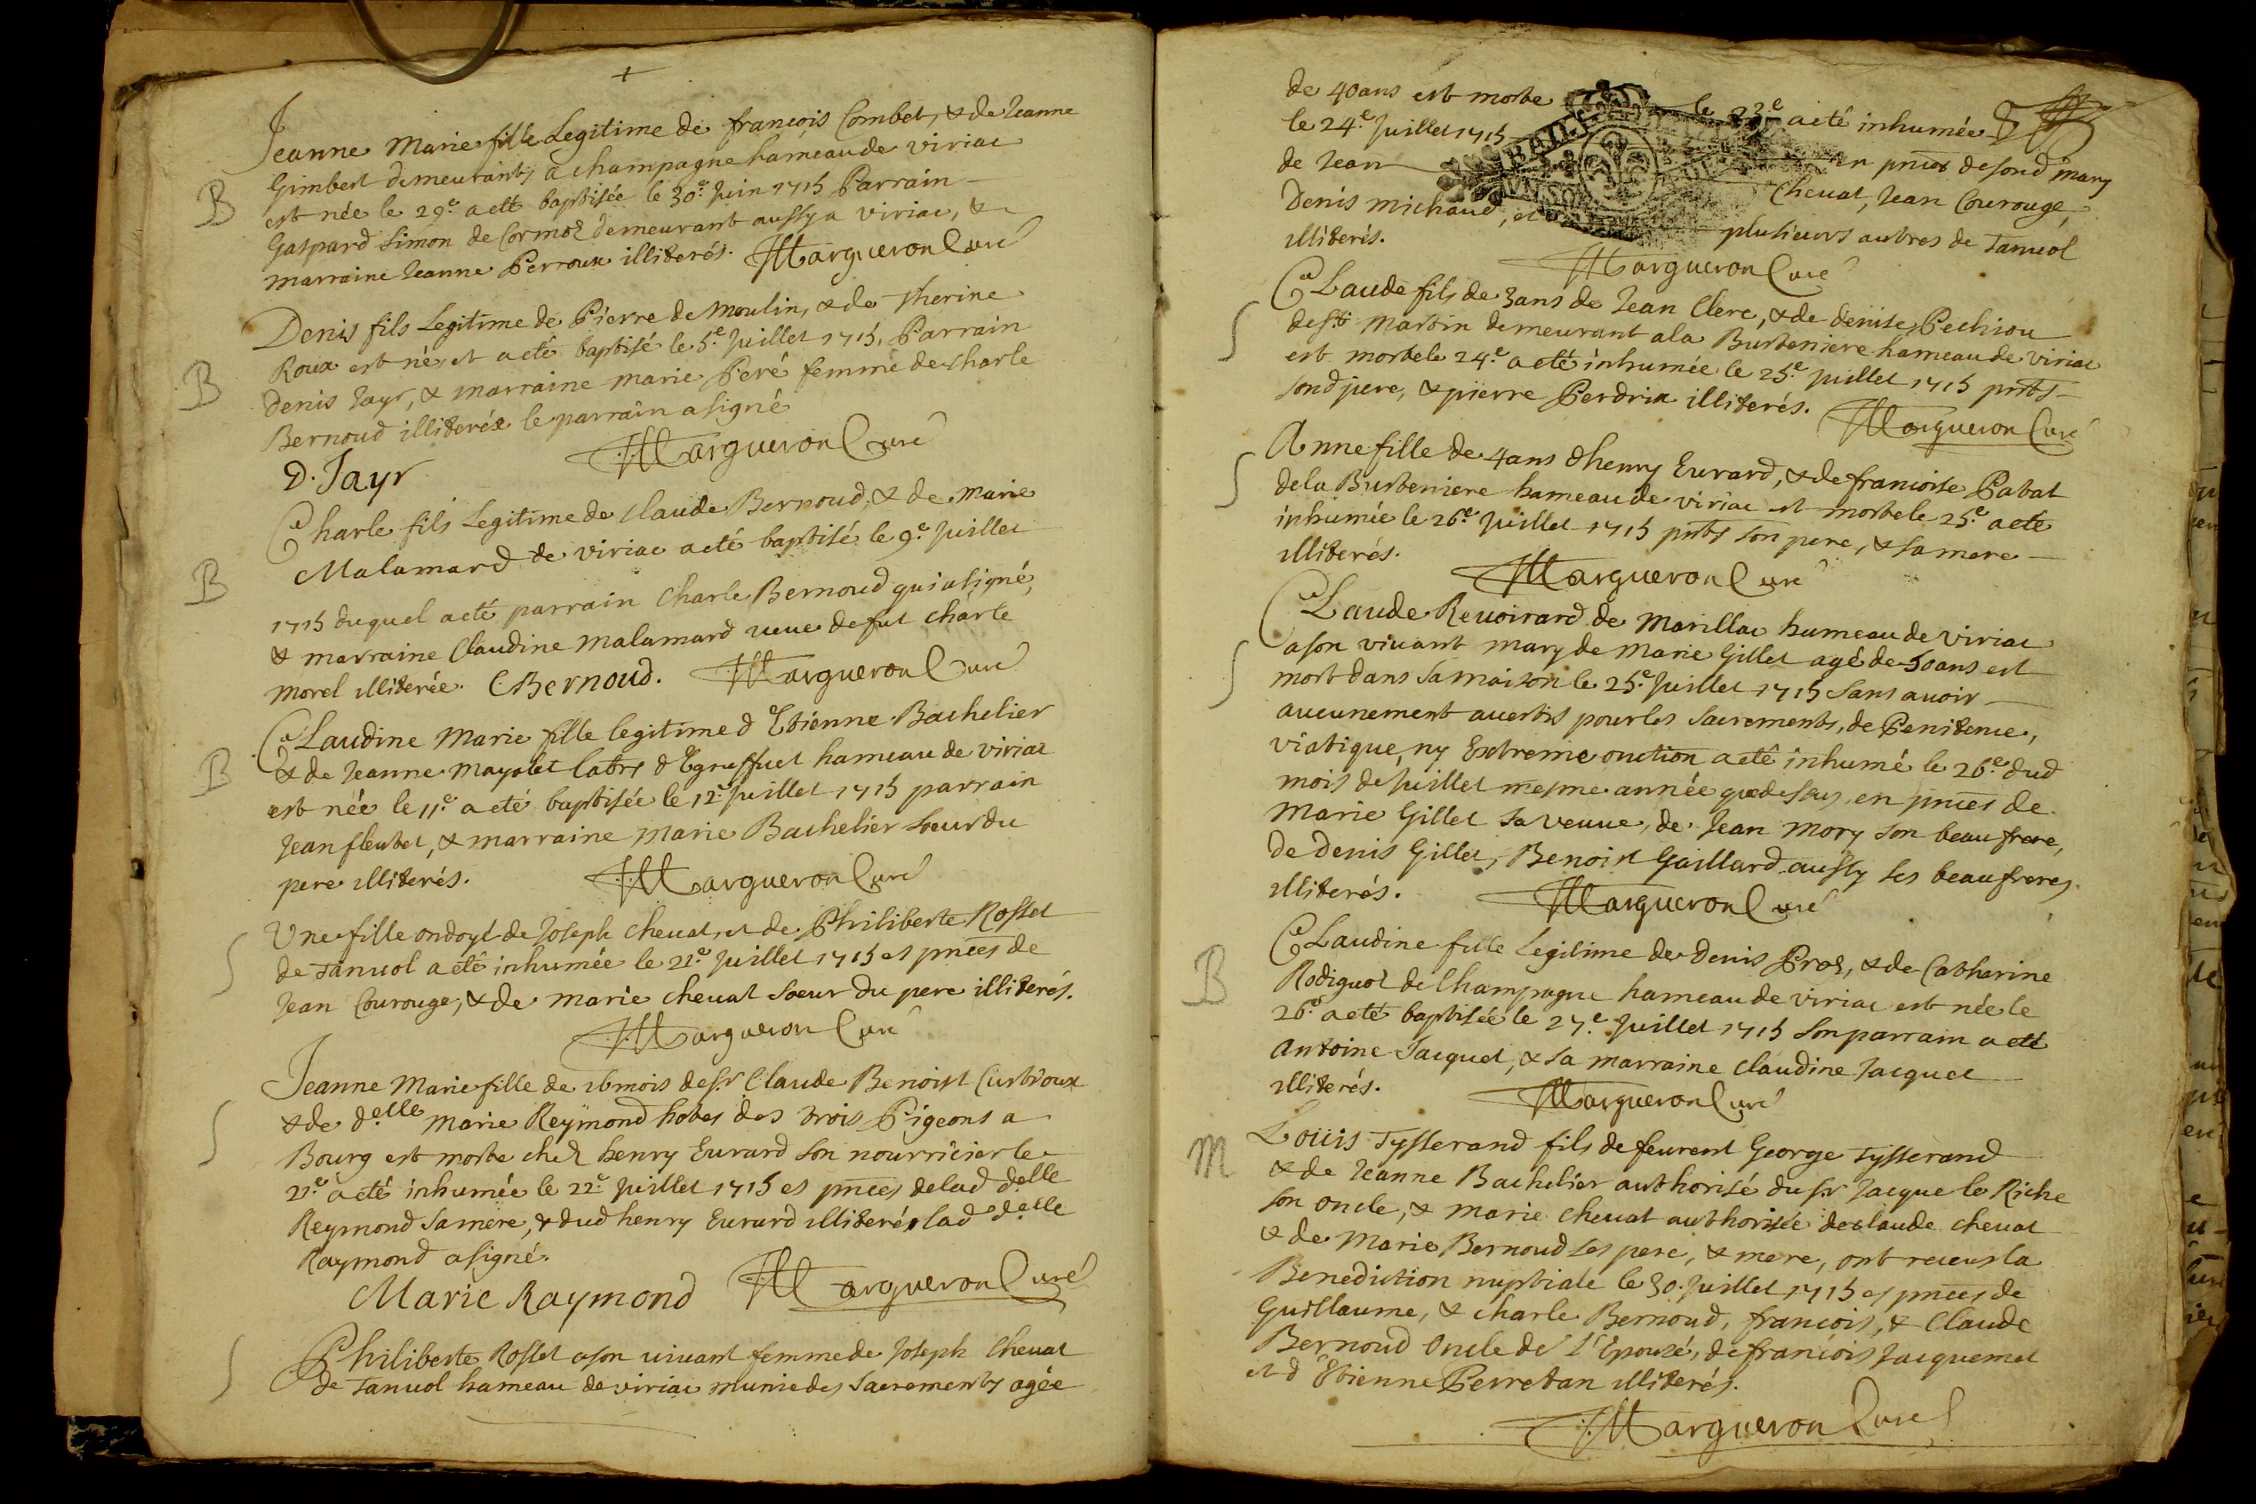 Jeanne Marie fille Legitime de françois Combet, & de Jeanne
Gimbert demeurants a champagne hameau de viriac
B
est née le 29.e a esté baptisée le 30.e Juin 1715 Parrain
Gaspard Simon de Cormoz demeurant aussy a viriac, &
marraine Jeanne Perroux illiterés. Margueron Curé
Denis fils Legitime de Pierre de Moulin, & de Therine
B
Roux est né, et a eté baptisé le 5.e Juillet 1715, Parrain
Denis Jayr, & marraine marie Peré femme de Charle
Bernoud illiterée le parrain a signé
D. Jayr Margueron Curé
Charle fils Legitime de Claude Bernoud, & de marie
B
Malamard de viriac a eté baptisé le 9.e Juillet
1715 duquel a eté parrain Charle Bernoud qui a signé,
& marraine Claudine malamard veuve de fut Charle
morel illiterée. CBernoud. Margueron Curé
CLaudine Marie fille legitime d'Etienne Bachelier
B
& de Jeanne Mayolet d'Egreffuet hameau de viriac
est née le 11.e a eté baptisée le 12.e Juillet 1715 parrain
Jean fleutet, & marraine Marie Bachelier soeur du
pere illiterés. Margueron Curé
Une fille ondoyé de Joseph Chevat, et de Philiberte Rosset
S
de Tanvol a eté inhumée le 21.e Juillet 1715 es pnces de
Jean Courouge, & de marie chevat soeur du pere illiterés.
Margueron Curé
Jeanne Marie fille de 16 mois de sr Claude Benoist Curtioux
S
& de d.elle Marie Reymond hotes des trois Pigeons a
Bourg est morte chez henry Evrard son nourricier le
21.e a eté inhumée le 22.e Juillet 1715 es pnces de lad delle
Reymond sa mere, & dud henry Evrard illiteré, lad d.elle
Raymond a signé.
Marie Raymond Margueron Curé
Philiberte Rosset a son vivant femme de Joseph Chevat
S
de Tanvol hameau de viriac munie des Sacrements agée
de 40 ans est morte le 23e a eté inhumée
le 24.e Juillet 1715 en pnces desond mary
de Jean Chevat, Jean Courouge,
Denis Michaud, et plusieurs autres de Tanvol
illiterés.
Margueron Curé
CLaude fils de 3 ans de Jean Clerc, & de denise Pechiou
S
de st Martin demeurant a la Burteniere hameau de viriac
est morte le 24.e a eté inhumée le 25.e Juillet 1715 pnts
sond pere, & pierre Perdrix illiterés. Margueron Curé
Anne fille de 4 ans dhenry Evrard, & de francoise Pabat
S
de la Burteniere hameau de viriac est morte le 25.e a eté
inhumée le 26.e Juillet 1715 pnts son pere, & sa mere
illiterés. Margueron Curé
CLaude Revoirard de Marillac hameau de viriac
S
a son vivant mary de Marie Gillet agé de 50 ans est
mort dans sa maison le 25.e Juillet 1715 sans avoir
aucunement avertis pour les Sacrements, de Penitence,
viatique, ny Extreme onction a eté inhumé le 26.e dud
mois de Juillet mesme année que dessus, en pnces de
Marie Gillet sa veuve, de Jean Mory son beau frere,
de Denis Gillet, Benoist Gaillard aussy ses beau freres
illiterés. Margueron Curé
CLaudine fille Legitime de Denis Proz, & de Catherine
B
Rodiguot de Champagne hameau de viriac est née le
26.e a eté baptisée le 27.e Juillet 1715 son parrain a eté
Antoine Jacquet, & sa marraine Claudine Jacquet
illiterés. Margueron Curé
Loüis Tysserand fils de feurent George Tysserand
M
& de Jeanne Bachelier authorisé du sr Jacque le Riche
son oncle, & marie chevat authorisée de claude chevat
& de Marie Bernoud ses pere, & mere, ont receus la
Benediction nuptiale le 30. Juillet 1715 es pnces de
Guillaume, & charle Bernoud, françois, & Claude
Bernoud oncle de l'Epouzé, de françois Jacquemet
et d'Etienne Perretan illiterés.
Margueron Curé